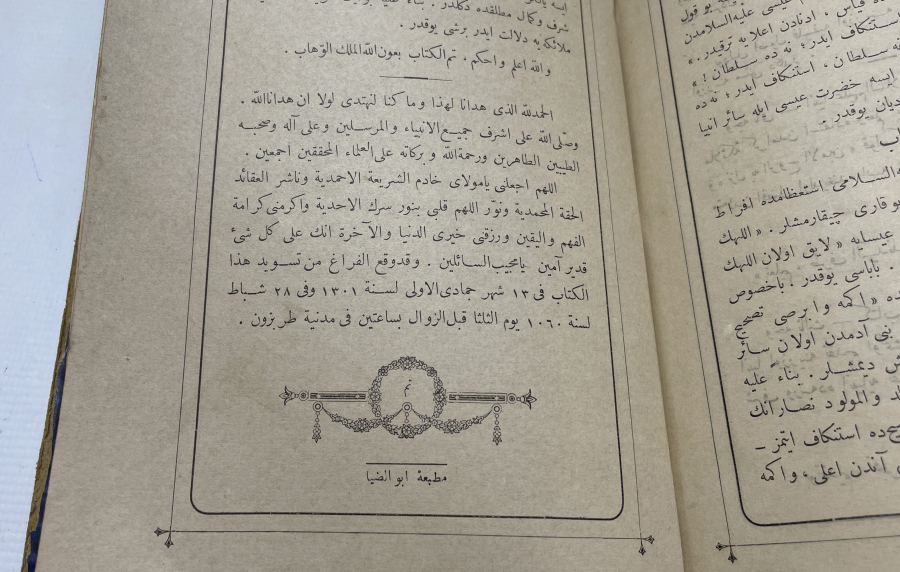 شرف وكمال مطلقده دكلدر . بناءً عليه
ملائكه يه دلالت ايدر برشى يوقدر .
والله اعلم واحكم . تم الكتاب بعون الله الملك الوهاب .
الحمدلله الذى هدانا لهذا وما كنا لنهتدى لولا ان هداناالله .
وصلى الله على اشرف جميع الانبياء والمرسلين وعلى آله وصحبه
الطيبين الطاهرين ورحمةالله و بركاته على العلماء المحققين اجمعين .
اللهم اجعلنى يامولاى خادم الشريعة الاحمدية وناشر العقائد
الحقة المحمدية ونوّر اللهم قلبى بنور سرك الاحدية واكرمنى كرامة
الفهم واليقين ورزقنى خيرى الدنيا والآخرة انك على كل شئ
قدير آمين يامجيب السائلين . وقدوقع الفراغ من تسويد هذا
الكتاب فى ١٣ شهر جمادى الاولى لسنة ١٣٠١ وفى ٢٨ شباط
لسنة ١٠٦٠ يوم الثلثا قبل الزوال بساعتين فى مدنية طربزون .
تم
مطبعهٔ ابوالضيا
عيسى عليه السلامدن
قياس ، ادنادن اعلايه ترقيدر . »
استنكاف ايدر ؛ نه ده سلطان ! »
سلطان ، استنكاف ايدر ؛ نه ده
ايسه حضرت عيسى ايله سائر انبيا
اديان يوقدر .
السلامى استعظامده افراط
يوقارى چيقارمشلر . « اللهك
عيسايه « لايق اولان اللهك
. باباسى يوقدر . باخصوص
ده « اكمه وابرصى تصحيح
بنى آدمدن اولان سائر
ديمشلر . بناءً عليه
والمولود نصارانك
ده استنكاف ايتمز ــ
آندن اعلى ، واكمه